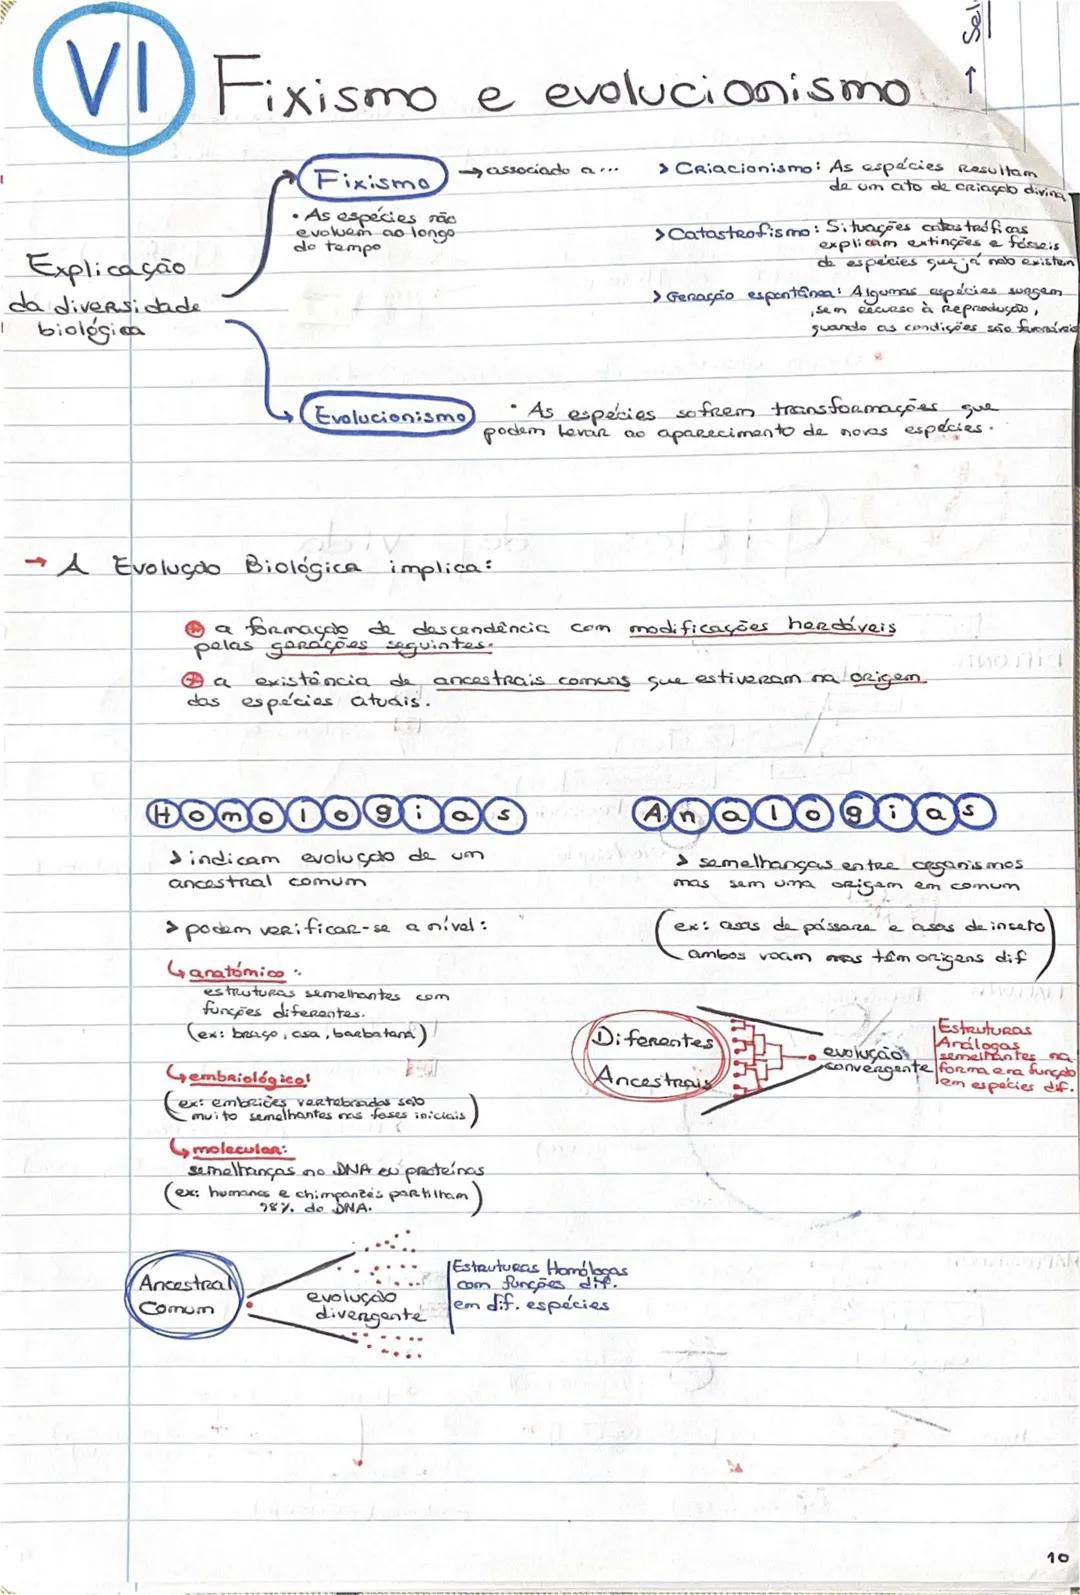 VI Fixismo e evolucionismo
→ Sel
Fixismo → associado a...
• As espécies não
evoluem ao longo
do tempo
> Criacionismo: As espécies resultam
de um ato de criação divina
> Catastrofismo: Situações catastróficas
explicam extinções e fósseis
de espécies que já não existem
> Geração espontânea: Algumas espécies surgem,
sem recurso à reprodução,
quando as condições são favoráveis
Explicação
da diversidade
biológica
Evolucionismo
• As espécies sofrem transformações que
podem levar ao aparecimento de novas espécies.
→ A Evolução Biológica implica:
a formação de descendência com modificações herdáveis
pelas gerações seguintes.
a existência de ancestrais comuns que estiveram na origem
das espécies atuais.
Homologias
> indicam evolução de um
ancestral comum
> podem verificar-se a nível:
↳ anatómico:
estruturas semelhantes com
funções diferentes.
(ex: braço, asa, barbatana)
↳ embriológico:
(ex: embriões vertebrados são
muito semelhantes nas fases iniciais)
↳ molecular:
semelhanças no DNA ou proteínas
(ex: humanos e chimpanzés partilham
98% do DNA.
Ancestral
Comum
evolução
divergente
Estruturas Homólogas
com funções dif.
em dif. espécies
Analogias
> semelhanças entre organismos
mas sem uma origem em comum
(ex: asas de pássaro e asas de inseto
ambos voam mas têm origens dif)
Diferentes
Ancestrais
evolução
convergente
Estruturas
Análogas
semelhantes na
forma e na função
em espécies dif.
10